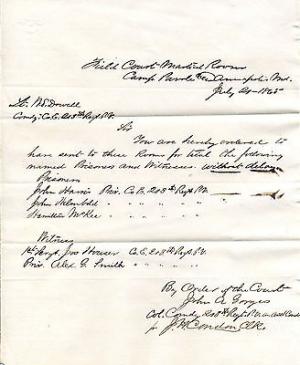 Field Court Martial Room
Camp Parole Annapolis Md.
July 20 1865
Lt. McDowell
Comdg. Co. E. 208th Regt. P.V.
Sir
You are hereby ordered to
have sent to these Rooms for trial the following
named Prisoners and Witnesses without delay
Prisoners
John Harris Priv. Co. E. 208th Regt. P.V.
John " " " "
Hamilton McKee " " " "
Witness
1st Sergt. Jos Houser Co. E. 208th Regt. P.V.
Priv. Alex G. Smith " " " "
By Order of the Court
John A Gorges
Col. Comdg 208th Regt. P.V.
for J. M. Condon Clk.